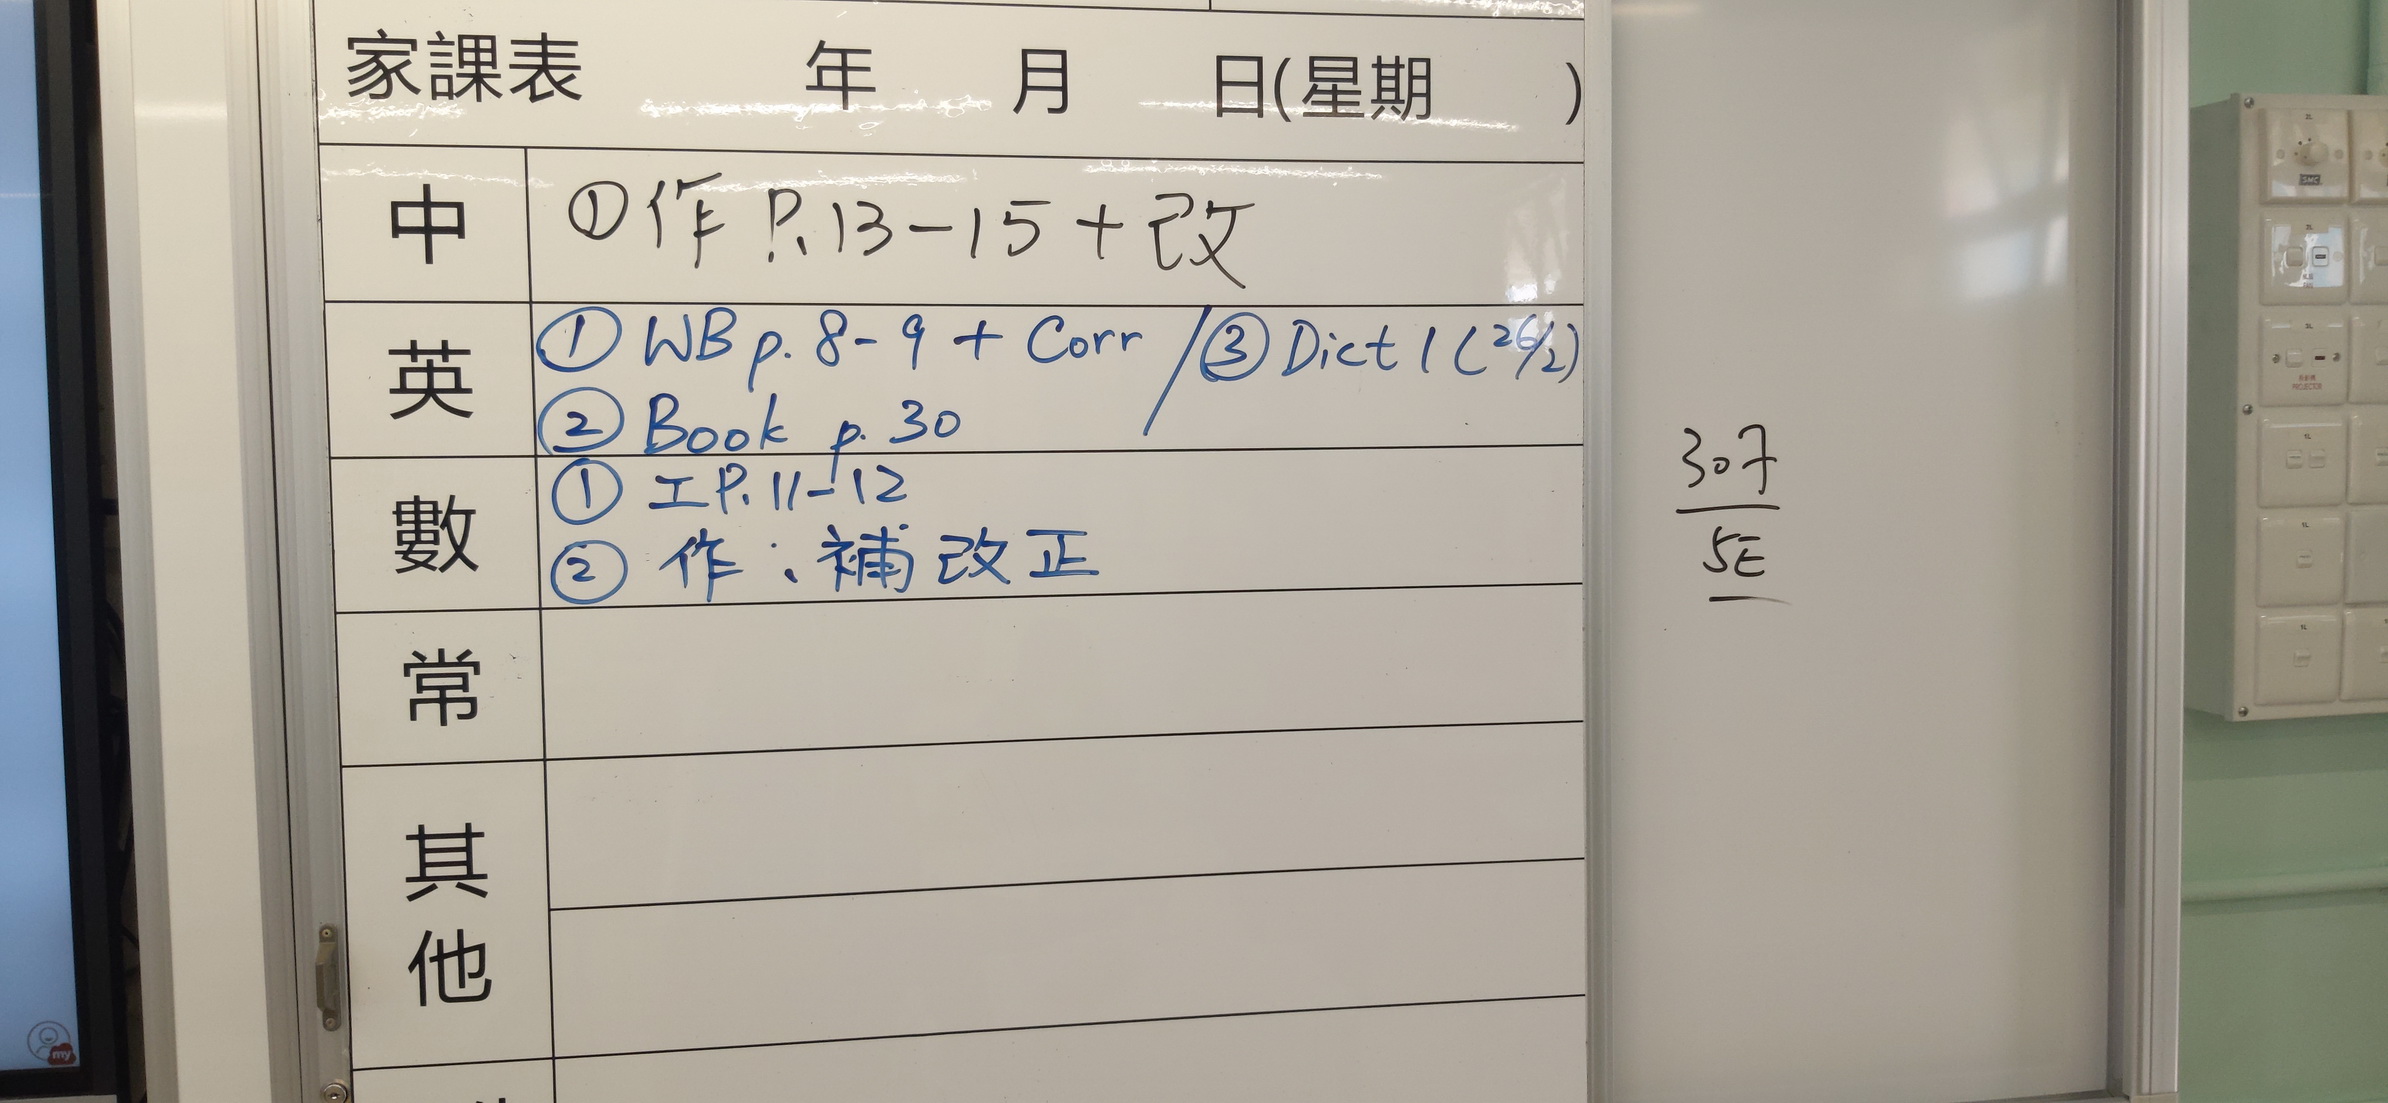 家課表 年 月 日(星期 )
中 ①作 P.13-15+改
英 ① WB p. 8-9 + Corr / ③ Dict 1 (26/2)
② Book p. 30
數 ① 工 P. 11-12
② 作：補改正
常
其他
307
5E
my